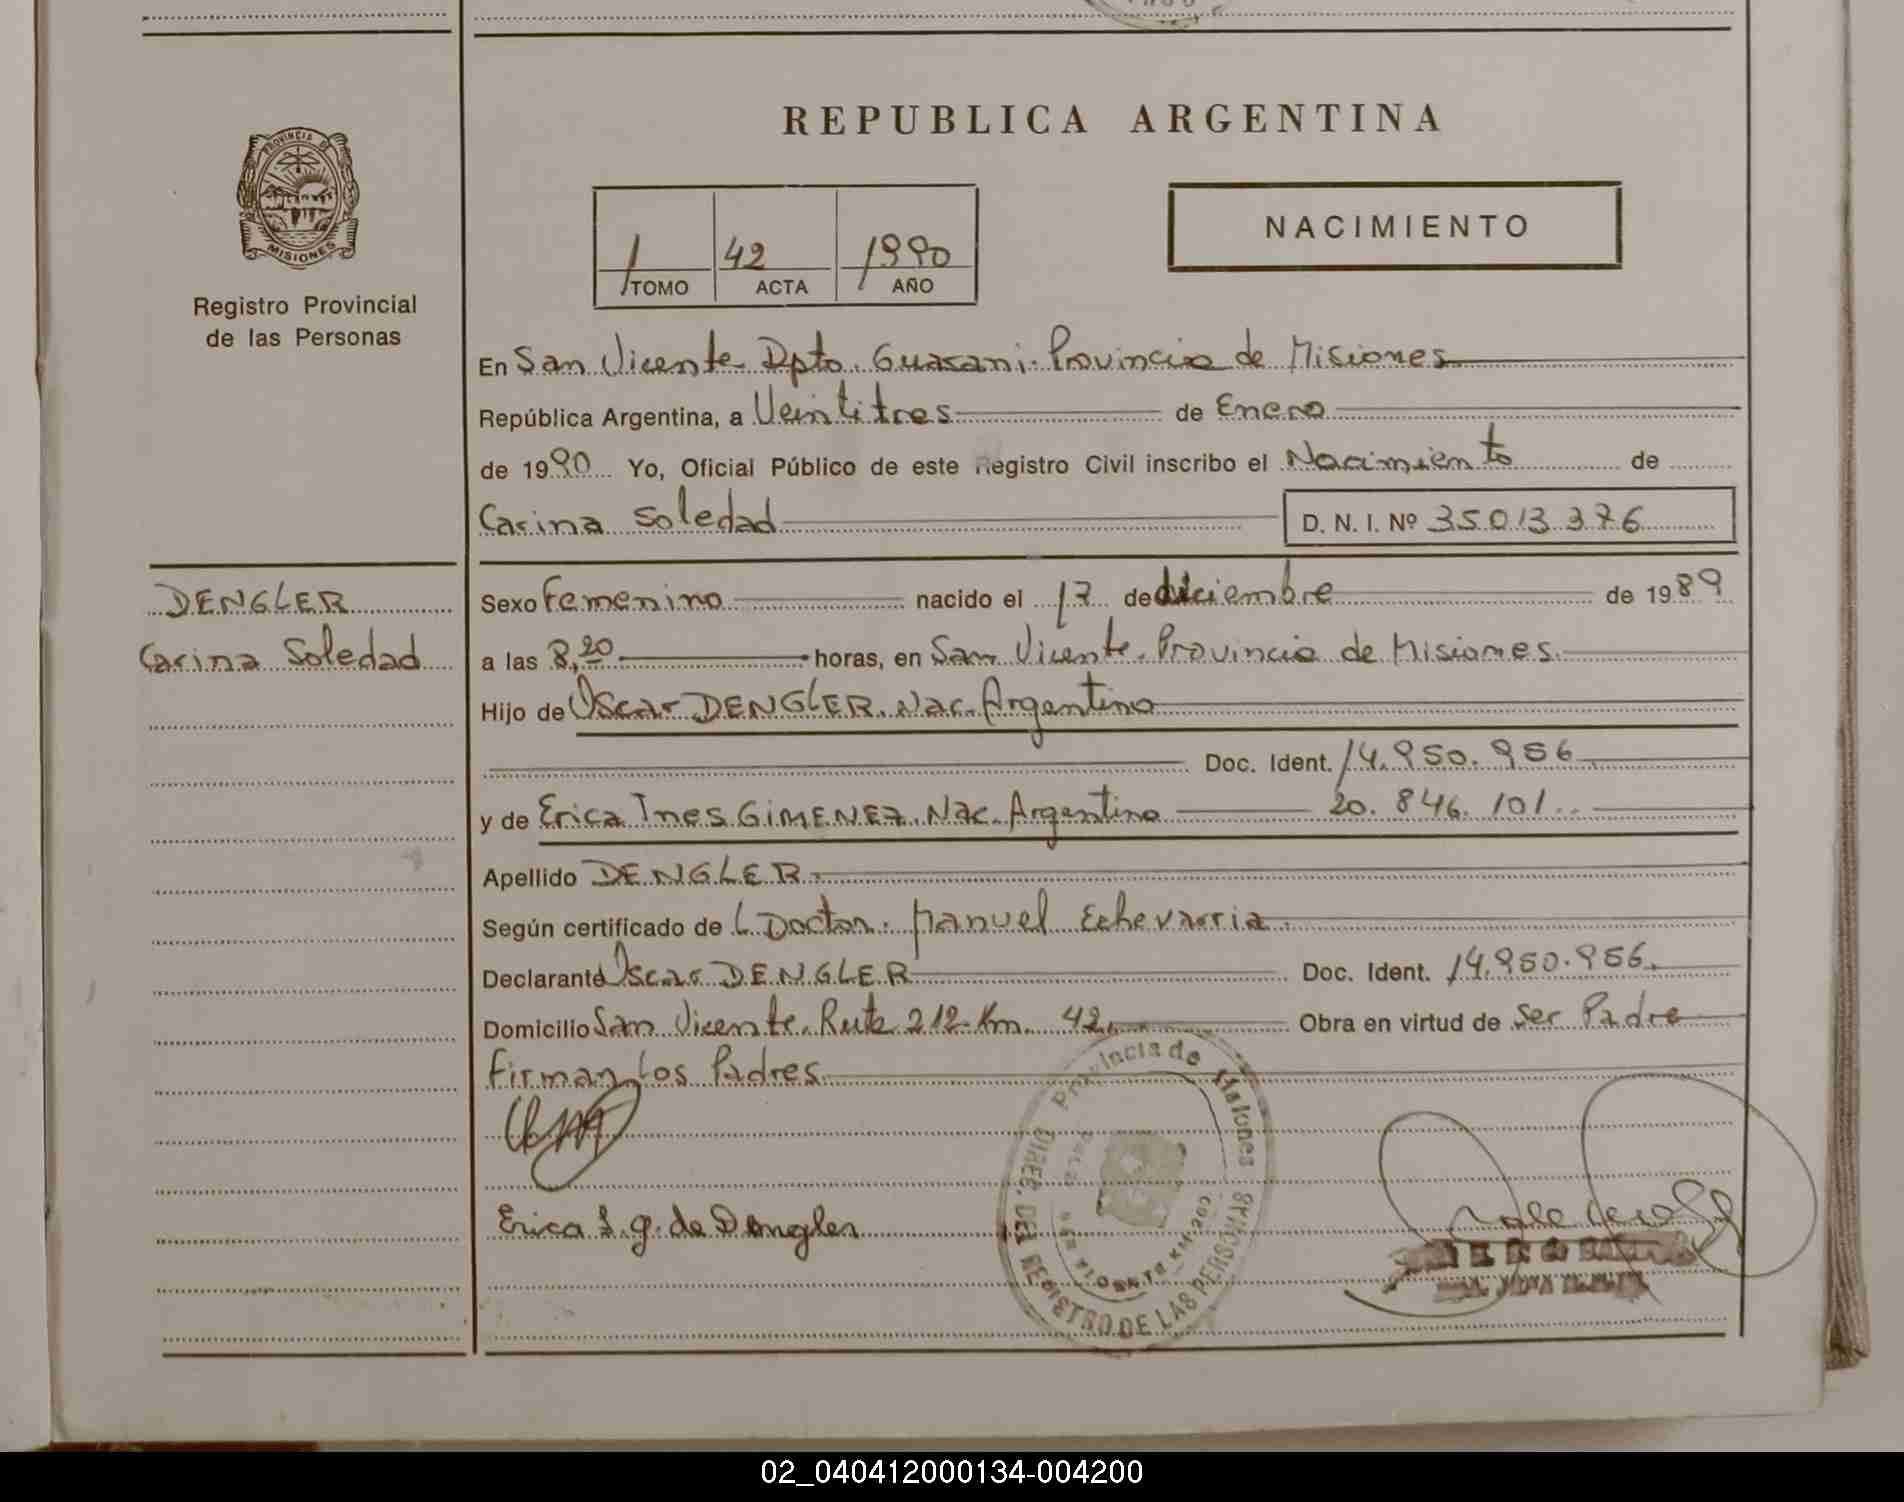 PROVINCIA DE
MISIONES
Registro Provincial
de las Personas
DENGLER
Carina Soledad
REPUBLICA ARGENTINA
1 42 1990
TOMO ACTA AÑO
NACIMIENTO
En San Vicente Dpto. Guarani. Provincia de Misiones
República Argentina, a Veintitres de Enero
de 1990 Yo, Oficial Público de este Registro Civil inscribo el Nacimiento de
Carina Soledad D. N. I. Nº 35.013.376
Sexo Femenino nacido el 17 de diciembre de 1989
a las 8,20 horas, en San Vicente. Provincia de Misiones.
Hijo de Oscar DENGLER. Nac. Argentino
Doc. Ident. 14.950.956
y de Erica Ines GIMENEZ. Nac. Argentino 20.846.101
Apellido DENGLER
Según certificado de L Doctor. Manuel Echevarria.
Declarante Oscar DENGLER Doc. Ident. 14.950.956.
Domicilio San Vicente. Ruta 212. Km. 42. Obra en virtud de Ser Padre
Firman Los Padres
Erica I. g. de Dengler
Provincia de Misiones
DIREC. DEL REGISTRO DE LAS PERSONAS
02_040412000134-004200